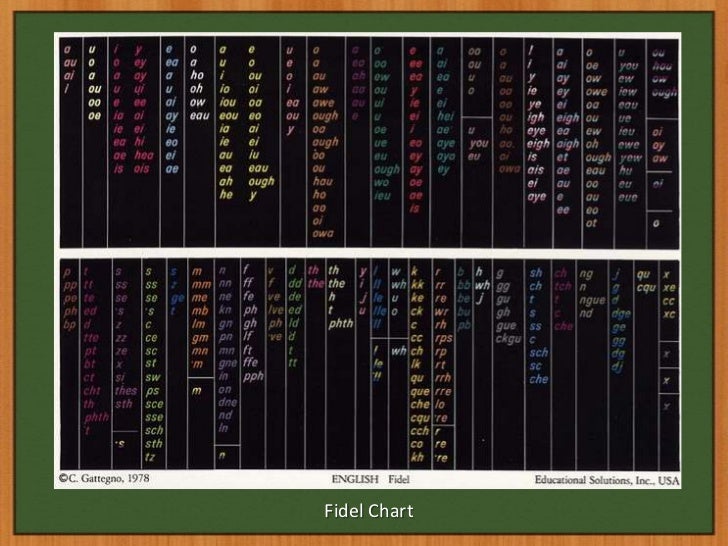 a au ai i
u o a ou oo oe
i o a u e ia ie ea ae is
y ey ay ui ee ei i hi hea ois
e ea a u ai ay ie eo ei ae
o a ho oh ow eau
a u i io iou eou ia ie au ea ah he
e i ou oi oa eo ai ei iu eau ough y
u e o i ea ou y
o a au aw awe ough oa augh ou hau ho ao oi owa
a ea ah aa au e
o oo ew ou u oe ue eu ough wo ieu
e ee ea y ie ei i eo ey ay oe ae is
a ai ea e ei hei ae aye ayo ey
oo ou u o
u you eu
o a au oa ou ho ao oi owa
I i y ie ye igh eye eigh is ais ei aye
a ai ay ey ei eigh ea aigh et ae au e ee
o oe ow owe oa ou ew oh ough oo au eo ot
u you ew iew eau ue ieu ewe yew hu eu eue
ou hou ow ough
oi oy aw
oi
o
p pp pe ph bp
t tt te ed d tte pt bt ct cht th phth 't
s ss se 's z zz ze x si thes sth
's
s ss se 's c ce sc st sw ps sce sse sch sth tz
s z ge t
m mm me mb lm gm mn 'm
m
n nn ne kn gn pn mn gne in on dne nd ln
n
f ff fe ph gh lf ft ffe pph
v f ve lve ph 've
d dd de ed ld 'd t tt
th the
the h t phth
y i j u
l ll le lle 'll
l le 'll
w wh u o
wh
k kk ke ck c cc ch lk qu que che cqu cch co kh
r rr re wr rh rps rp rt rrh rre lo re
r re 're
b bb be bu pb
h wh j
g gg gu gh gue ckgu
sh ch t s ss c sch sc che
ch tch t c che
ng n ngue nd
j g d dge ge gg dg dj
qu cqu
x xe cc xc
x
x
x
©C. Gattegno, 1978 ENGLISH Fidel Educational Solutions, Inc., USA
Fidel Chart